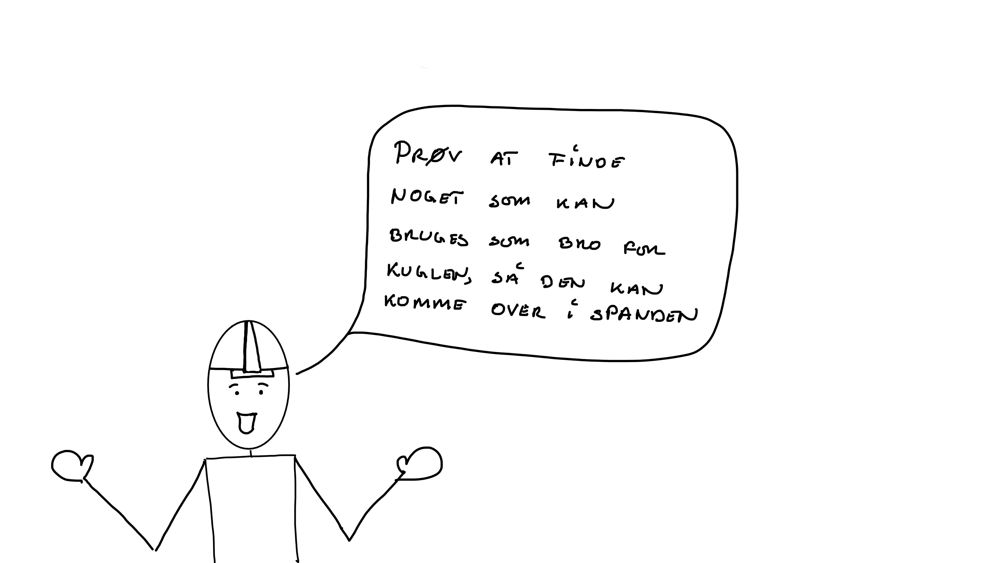 PRØV AT FINDE
NOGET SOM KAN
BRUGES SOM BRO FOR
KUGLEN, SÅ DEN KAN
KOMME OVER I SPANDEN